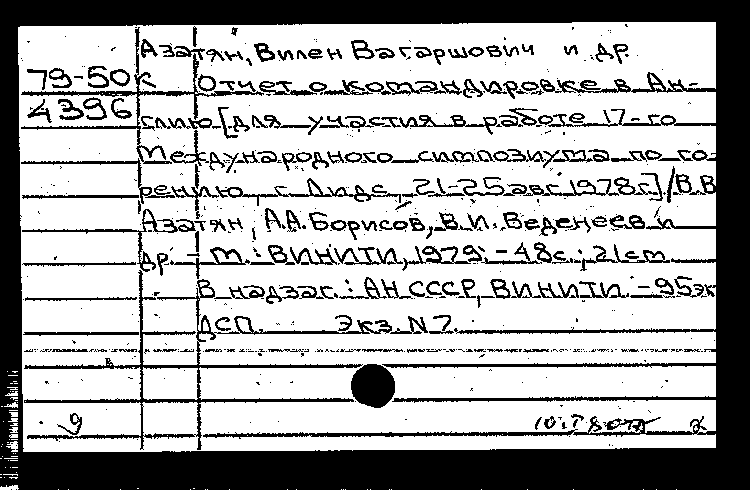 Азатян, Вилен Вагаршович и др.
79-50к Отчет о командировке в Ан-
4396 глию [для участия в работе 17-го
Международного симпозиума по го-
рению, г. Лидс, 21-25 авг. 1978г.] / В.В.
Азатян, А.А. Борисов, В.И. Веденеев и
др. - М.: ВИНИТИ, 1979. - 48с.; 21см.
В надзаг.: АН СССР, ВИНИТИ. - 95эк
ДСП. Экз. N 7.
9